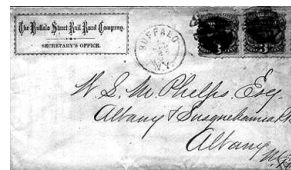 The Buffalo Street Rail Road Company,
SECRETARY'S OFFICE.
BUFFALO
N.Y.
W. L. M. Phelps, Esq
Albany & Susquehanna
Albany
N.Y.